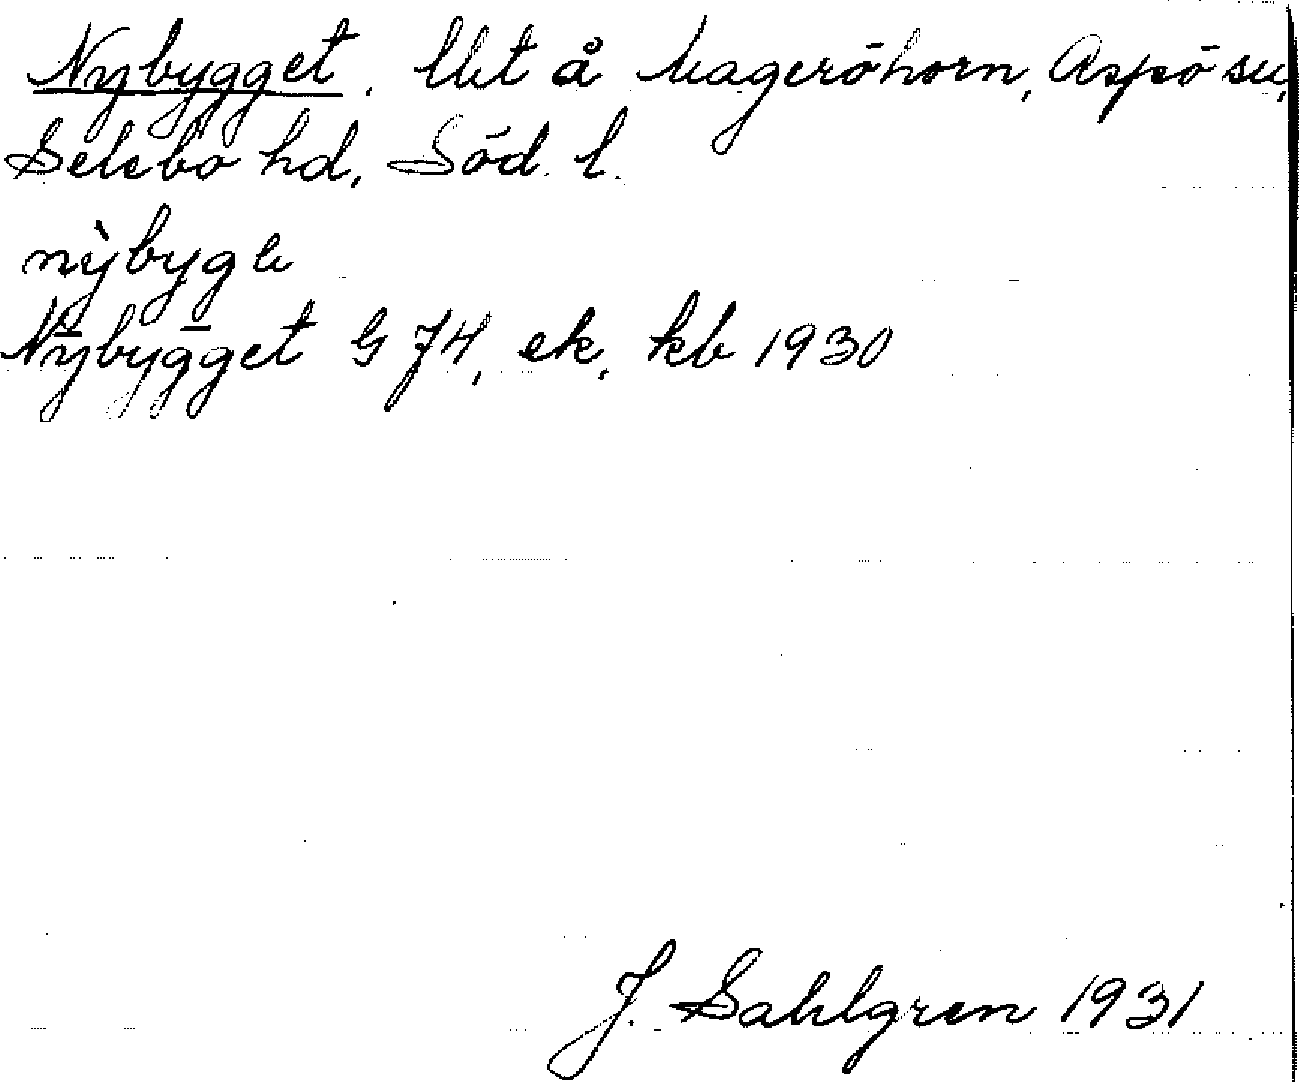 Nybygget. Utt å Mageröhorn, Aspö sn,
Selebo hd, Söd. l.
nỳbyge
Nybygget G J4, ek, kb 1930
J. Sahlgren 1931